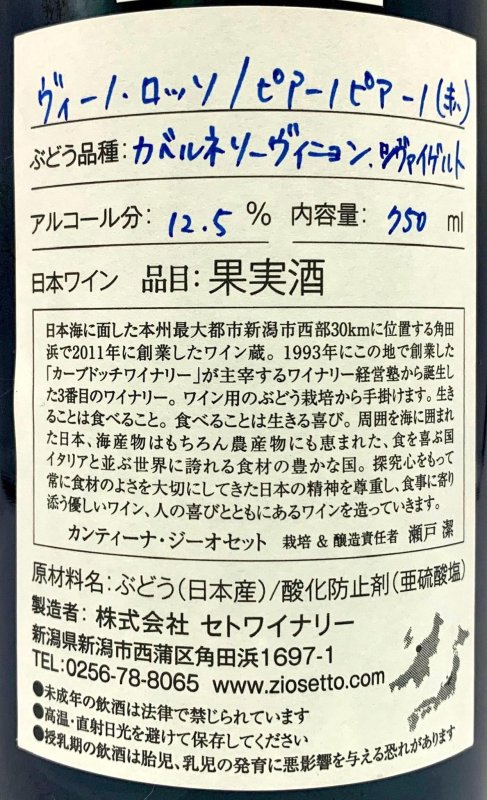 ヴィーノ・ロッソ/ピアーノピアーノ(赤)
ぶどう品種:カベルネソーヴィニョン、ツヴァイゲルト
アルコール分: 12.5 % 内容量: 750 ml
日本ワイン 品目:果実酒
日本海に面した本州最大都市新潟市西部30kmに位置する角田
浜で2011年に創業したワイン蔵。1993年にこの地で創業した
「カーブドッチワイナリー」が主宰するワイナリー経営塾から誕生し
た3番目のワイナリー。ワイン用のぶどう栽培から手掛けます。生き
ることは食べること。食べることは生きる喜び。周囲を海に囲まれ
た日本、海産物はもちろん農産物にも恵まれた、食を喜ぶ国
イタリアと並ぶ世界に誇れる食材の豊かな国。探究心をもって
常に食材のよさを大切にしてきた日本の精神を尊重し、食事に寄り
添う優しいワイン、人の喜びとともにあるワインを造っていきます。
カンティーナ・ジーオセット 栽培 & 醸造責任者 瀬戸 潔
原材料名:ぶどう(日本産)/酸化防止剤(亜硫酸塩)
製造者:株式会社 セトワイナリー
新潟県新潟市西蒲区角田浜1697-1
TEL:0256-78-8065 www.ziosetto.com
●未成年の飲酒は法律で禁じられています
●高温・直射日光を避けて保存してください
●授乳期の飲酒は胎児、乳児の発育に悪影響を与える恐れがあります